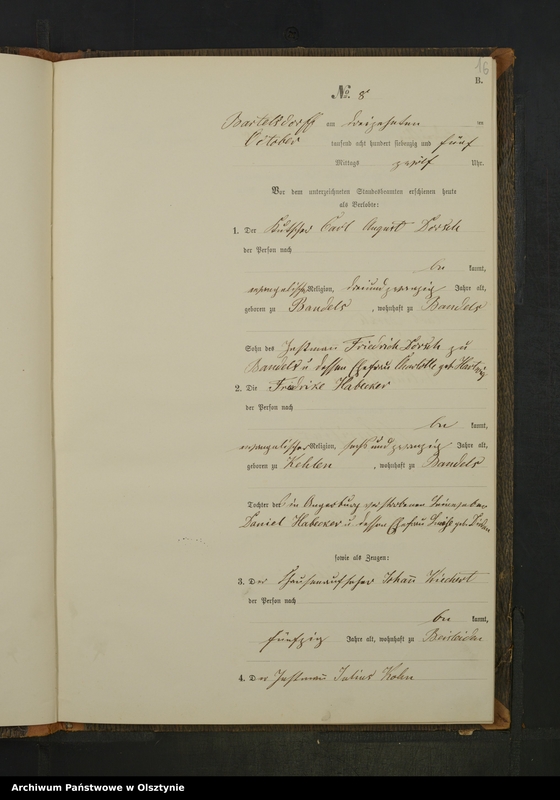 16
B.
№ 8
Bartelsdorff am dreizehnten ten
October tausend acht hundert siebenzig und fünf
Mittags zwölf Uhr.
Vor dem unterzeichneten Standesbeamten erschienen heute
als Verlobte:
1. Der Kutscher Carl August Dorsch
der Person nach
be kannt,
evangelischer Religion, dreiundzwanzig Jahre alt,
geboren zu Bandels, wohnhaft zu Bandels
Sohn des Instmann Friedrich Dorsch zu
Bandels u dessen Ehefrau Charlotte geb Hartwig
2. Die Fredrike Habecker
der Person nach
be kannt,
evangelischer Religion, sechsundzwanzig Jahre alt,
geboren zu Kehlen, wohnhaft zu Bandels
Tochter des in Angerburg verstorbenen
Daniel Habecker u. dessen Ehefrau geb.
sowie als Zeugen:
3. Der Johann Wiechert
der Person nach
be kannt,
fünfzig Jahre alt, wohnhaft zu Beisleiden
4. Der Instmann Julius Kohn
Archiwum Państwowe w Olsztynie